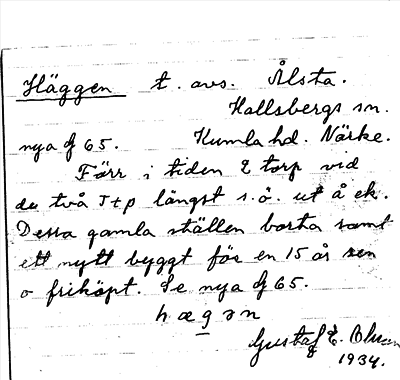 Häggen t. avs. Ålsta.
Hallsbergs sn.
nya g 65. Kumla hd. Närke.
Förr i tiden 2 torp vid
de två T+p längst s.ö. ut å ek.
Dessa gamla ställen borta samt
ett nytt byggt för en 15 år sen
o friköpt. Se nya g 65.
hægən
Gustaf E.
1934.